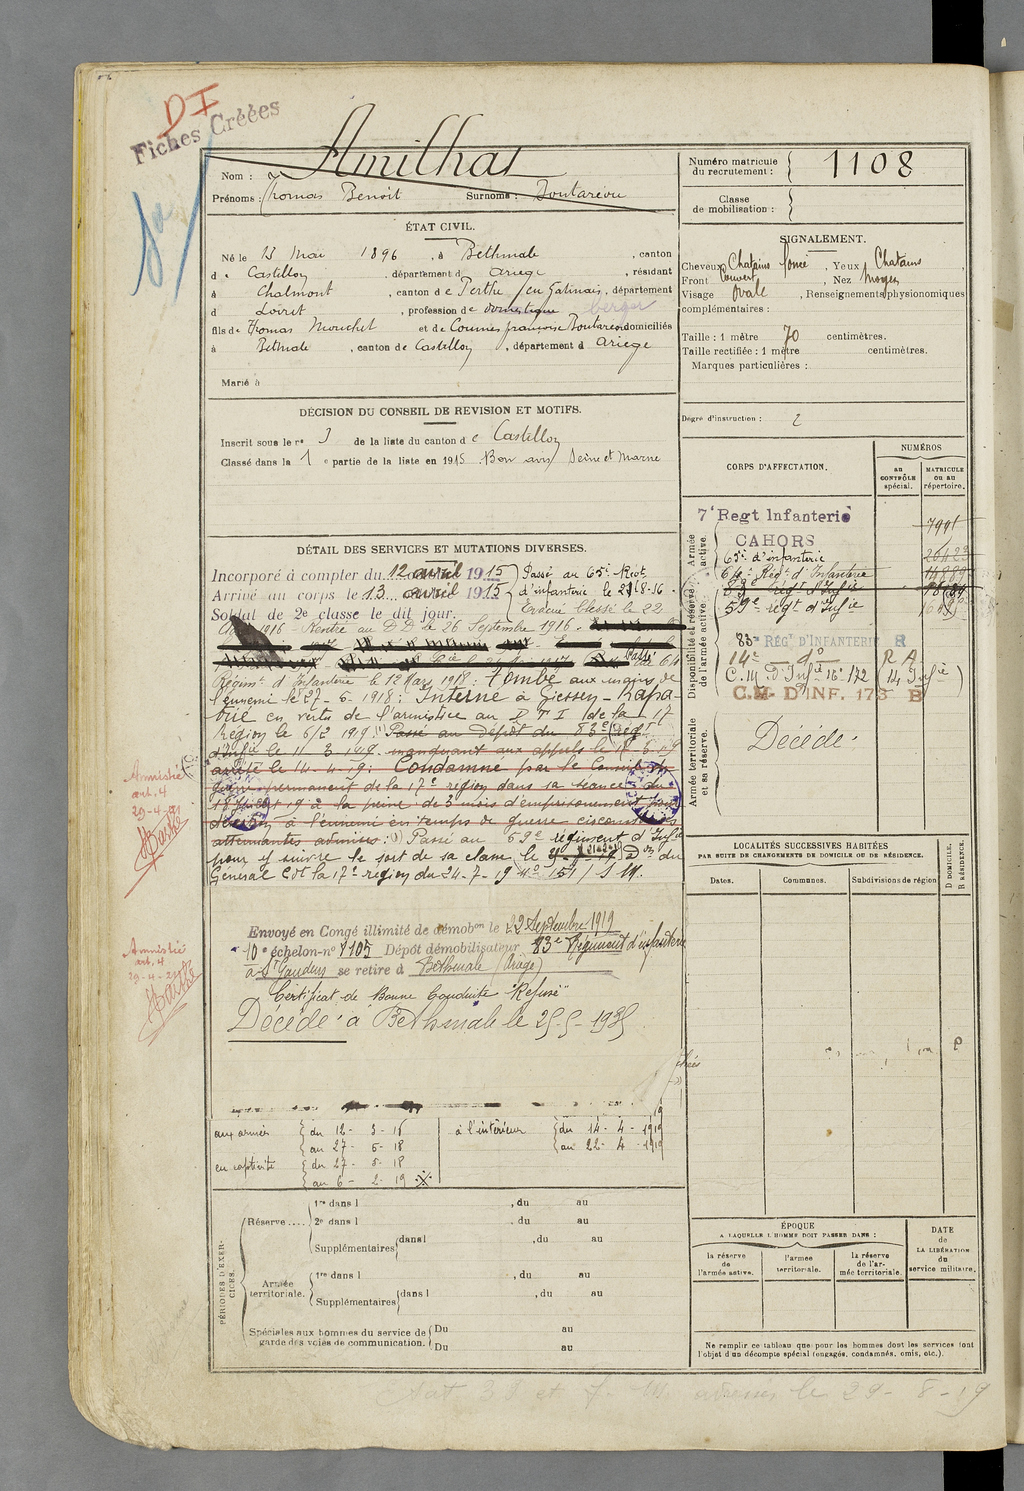 DI
Fiches Créées
Nom : Amilhat
Prénoms : Thomas Benoît Surnoms : Doutareou
Numéro matricule du recrutement : 1108
Classe de mobilisation :
ÉTAT CIVIL.
Né le 13 Mai 1896, à Bethmale, canton
de Castillon, département d Ariège, résidant
à Chalmont, canton de Perthe / en Gatinais, département
d Loiret, profession de domestique berger
fils de Thomas Mouchet et de Cournès françoise Doutareou domiciliés
à Betmale, canton de Castillon, département d Ariège
Marié à
SIGNALEMENT.
Cheveux Chatains foncé, Yeux Chatains,
Front Couvert, Nez Moyen
Visage Ovale, Renseignements physionomiques
complémentaires :
Taille : 1 mètre 70 centimètres.
Taille rectifiée : 1 mètre centimètres.
Marques particulières :
DÉCISION DU CONSEIL DE REVISION ET MOTIFS.
Inscrit sous le n° 3 de la liste du canton de Castillon
Classé dans la 1e partie de la liste en 1915. Bon avis Seine et Marne
Degré d'instruction : 2
CORPS D'AFFECTATION.
NUMÉROS
au CONTRÔLE spécial.
MATRICULE ou au répertoire.
Armée active.
7e Regt Infanterie
7991
CAHORS
65e d'infanterie
64e Régt d'Infanterie
83e Régt d'Infie
59e régt d'Infie
Disponibilité et réserve de l'armée active.
83e RÉGt D'INFANTERIE R
C.M. D'Infie 16e 172
C.M. D'INF. 173 B
Armée territoriale et sa réserve.
Décédé.
DÉTAIL DES SERVICES ET MUTATIONS DIVERSES.
Incorporé à compter du 12 avril 1915 Passé au 65e Régt
Arrivé au corps le 13 avril 1915 d'infanterie le 21-8-16
Soldat de 2e classe le dit jour. Evacué blessé le 22
1916 - Rentré au D.D. le 26 Septembre 1916.
Passé au 64e
Régimt d'Infanterie le 12 Mars 1918 : Tombé aux mains de
l'ennemi le 27-5-1918 : Interné à Giessen - Rapa-
trié en vertu de l'armistice au D T I de la 17
Région le 6/2 1919. Passé au Dépôt du 83e Régt
d'Infie le 11 3 1919. manquant aux appels le 18 3 19
arrêté le 14-4-19 : Condamné par le Conseil de
guerre permanent de la 17e région dans sa séance du
1919 à la peine de 3 mois d'emprisonnement pour
à l'ennemi en temps de guerre circonstances
atténuantes admises : Passé au 59e régiment d'Infie
pour y suivre le sort de sa classe le
Général Cdt la 17e région du 24-7-19 No 1541/1 M.
Amnistié
art. 4
29-4-21
Barthe
Amnistié
art. 4
29-4-21
Barthe
Envoyé en Congé illimité de démobon le 22 Septembre 1919
10e échelon-n° 1105 Dépôt démobilisateur 83e Régiment d'infanterie
à St Gaudens se retire à Bethmale (Ariège)
Certificat de Bonne Conduite "Refusé"
Décédé à Bethmale le 25-5-1935
aux armées du 12-3-16
au 27-5-18
en captivité du 27-5-18
au 6-2-19
à l'intérieur du 14-4-1919
au 22-4-1919
LOCALITÉS SUCCESSIVES HABITÉES
PAR SUITE DE CHANGEMENTS DE DOMICILE OU DE RÉSIDENCE.
Dates.
Communes.
Subdivisions de région
D DOMICILE.
R RÉSIDENCE.
PÉRIODES D'EXERCICES.
Réserve....
1re dans l , du au
2e dans l , du au
Supplémentaires dans l , du au
Armée territoriale.
1re dans l , du au
Supplémentaires dans l , du au
Spéciales aux hommes du service de garde des voies de communication. Du au
Du au
ÉPOQUE
A LAQUELLE L'HOMME DOIT PASSER DANS :
la réserve de l'armée active.
l'armée territoriale.
la réserve de l'armée territoriale.
DATE de LA LIBÉRATION du service militaire.
Ne remplir ce tableau que pour les hommes dont les services font l'objet d'un décompte spécial (engagés, condamnés, omis, etc.).